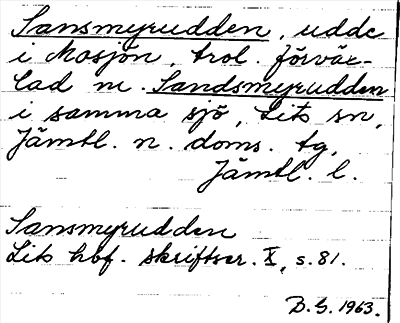 Sansmyrudden, udde
i Mosjön, trol. förväx-
lad m. Sandsmyrudden
i samma sjö, Lits sn,
Jämtl. n. doms. tg,
Jämtl. l.
Sansmyrudden
Lits hbf. skriftser. X, s. 81.
D.S. 1963.